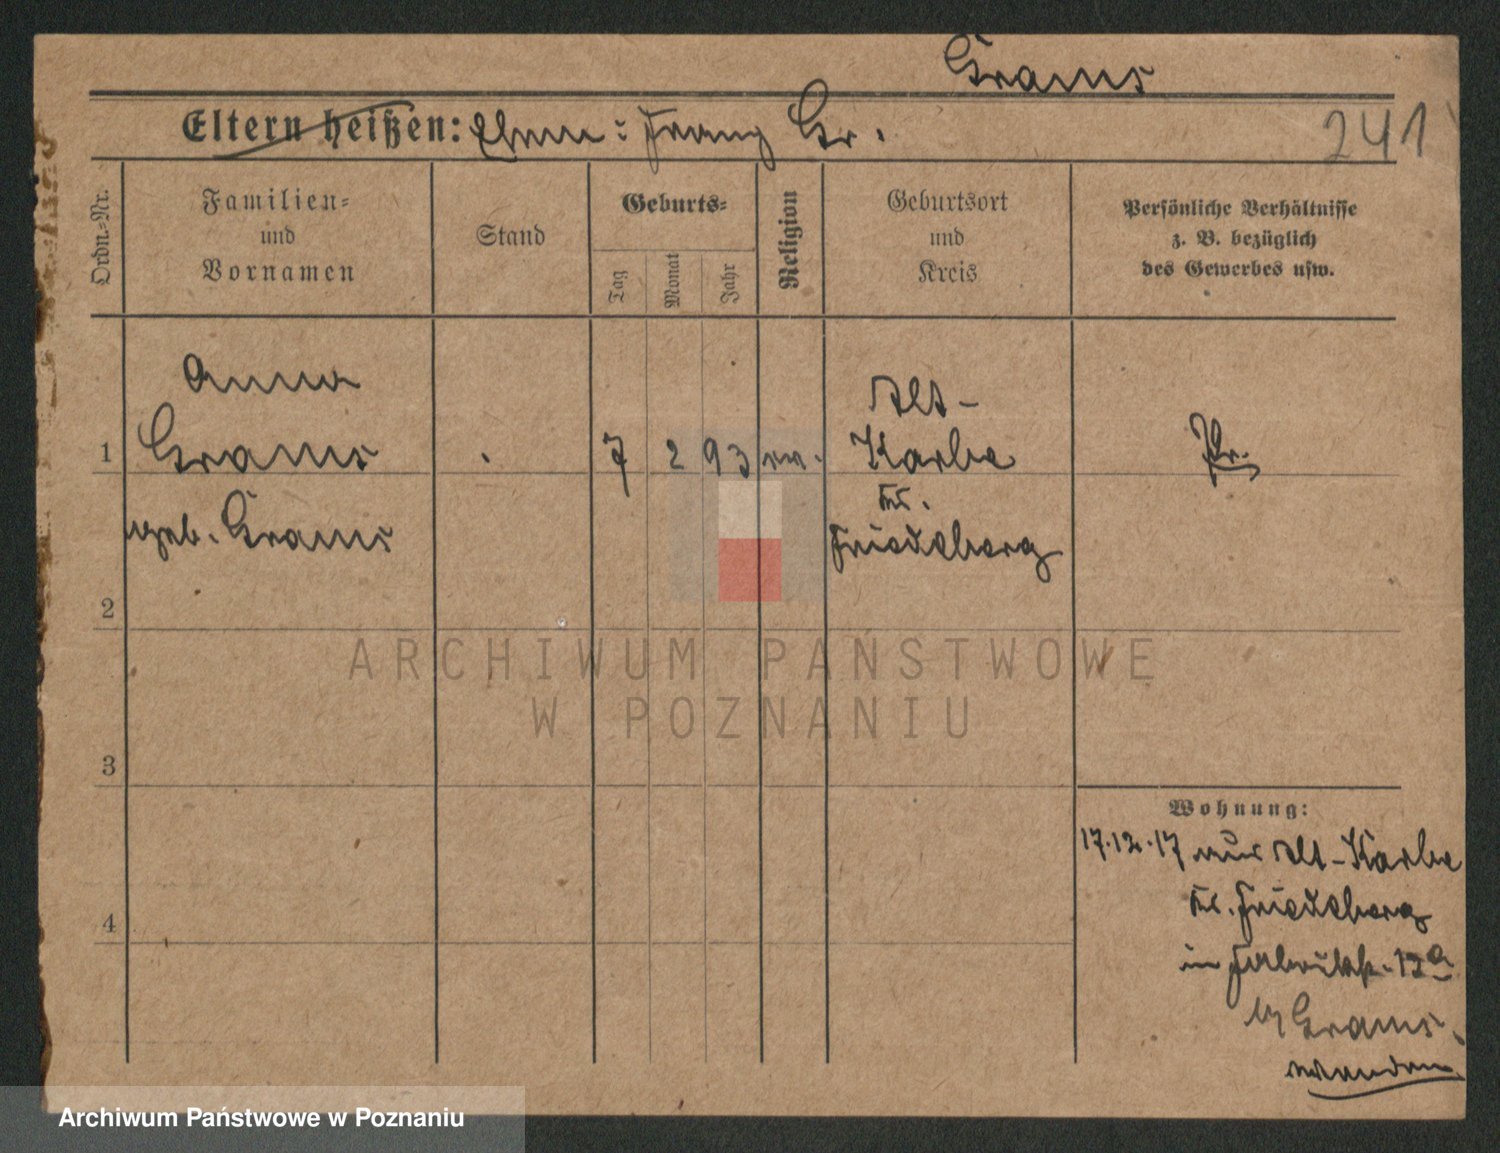 Grams
Eltern heißen: Ehem: Franz Gr.
241
Ordn.-Nr.
Familien-
und
Vornamen
Stand
Geburts-
Tag
Monat
Jahr
Religion
Geburtsort
und
Kreis
Persönliche Verhältnisse
z. B. bezüglich
des Gewerbes usw.
Anna
1 Grams 7 2 93 Karbe Pr.
Alt-
geb. Grams
Kr.
Friedeberg
2
ARCHIWUM PAŃSTWOWE
W POZNANIU
3
Wohnung:
17.12.17 aus Alt-Karbe
4
Kr. Friedeberg
in Fabrikstr. 12a
bz Grams.
wenden
Archiwum Państwowe w Poznaniu